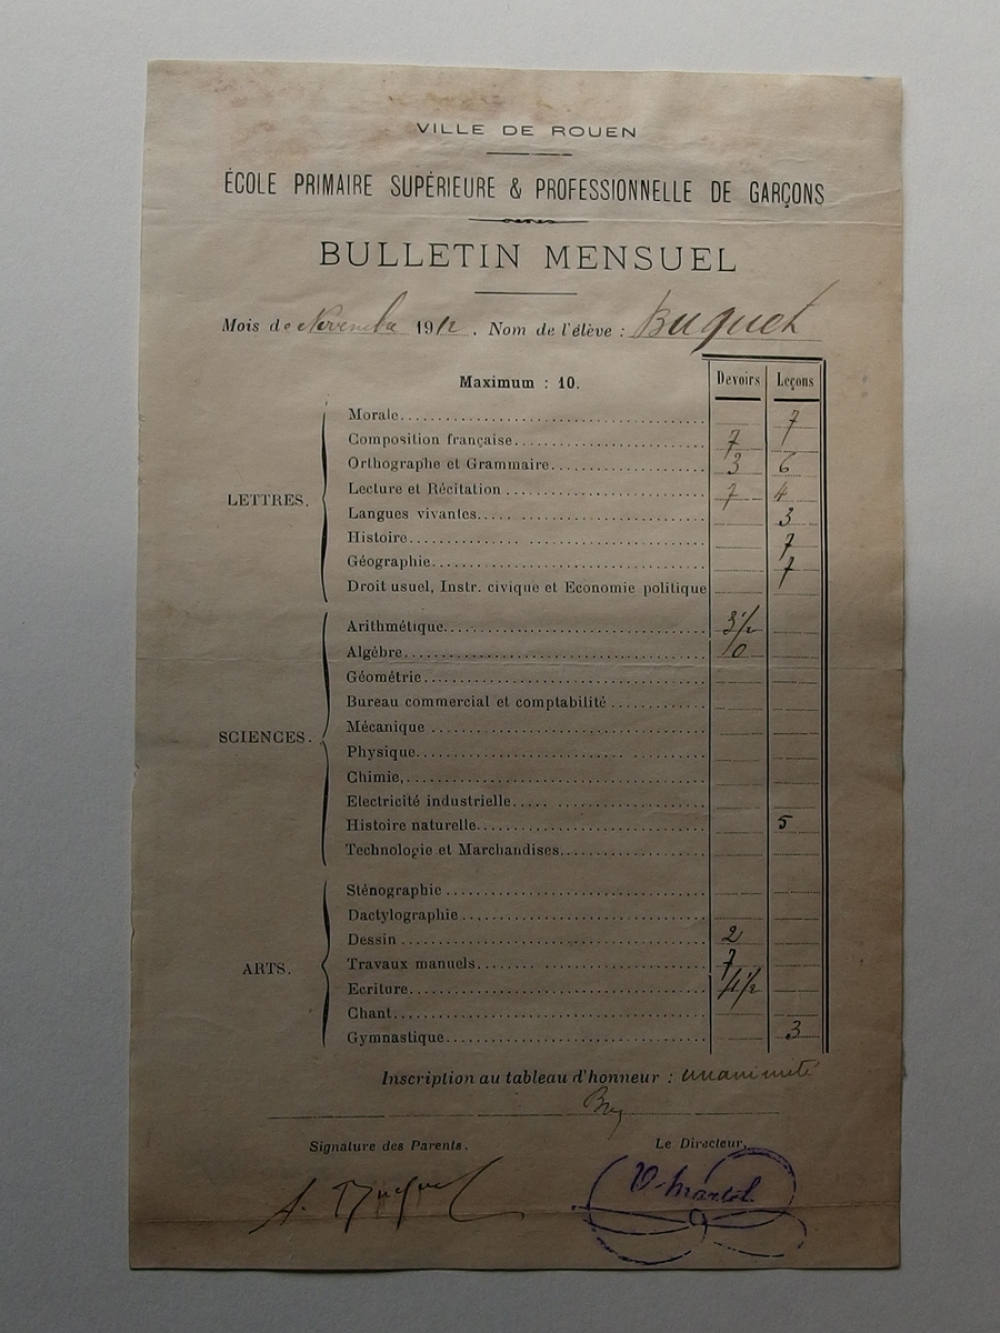 VILLE DE ROUEN
ÉCOLE PRIMAIRE SUPÉRIEURE & PROFESSIONNELLE DE GARÇONS
BULLETIN MENSUEL
Mois de Novembre 1912. Nom de l'élève : Buquet
Maximum : 10. Devoirs Leçons
LETTRES.
Morale 7
Composition française 7
Orthographe et Grammaire 3 6
Lecture et Récitation 7 4
Langues vivantes 3
Histoire 7
Géographie 7
Droit usuel, Instr. civique et Economie politique
SCIENCES.
Arithmétique 3 1/2
Algèbre 0
Géométrie
Bureau commercial et comptabilité
Mécanique
Physique
Chimie,
Electricité industrielle
Histoire naturelle 5
Technologie et Marchandises
ARTS.
Sténographie
Dactylographie
Dessin 2
Travaux manuels 7
Ecriture 4 1/2
Chant
Gymnastique 3
Inscription au tableau d'honneur : unanimité
Signature des Parents. Le Directeur,
A. Buquet